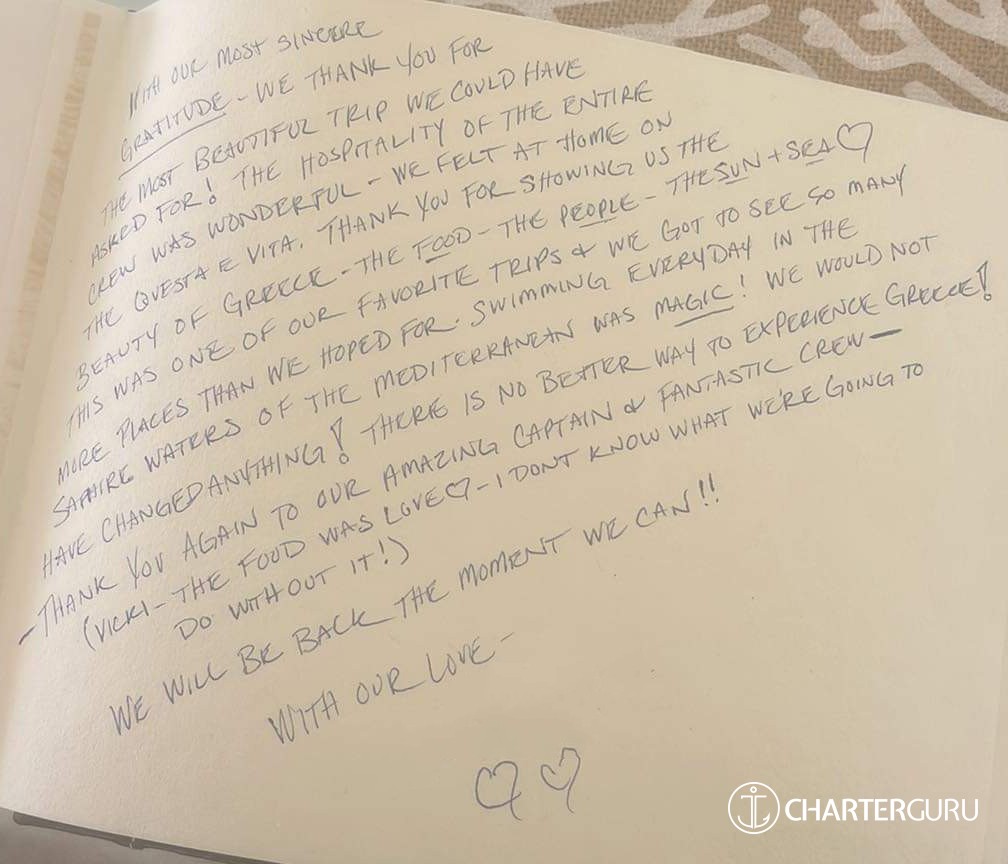 WITH OUR MOST SINCERE
GRATITUDE - WE THANK YOU FOR
THE MOST BEAUTIFUL TRIP WE COULD HAVE
ASKED FOR! THE HOSPITALITY OF THE ENTIRE
CREW WAS WONDERFUL - WE FELT AT HOME ON
THE QUESTA E VITA. THANK YOU FOR SHOWING US THE
BEAUTY OF GREECE - THE FOOD - THE PEOPLE - THE SUN + SEA ♡
THIS WAS ONE OF OUR FAVORITE TRIPS & WE GOT TO SEE SO MANY
MORE PLACES THAN WE HOPED FOR. SWIMMING EVERYDAY IN THE
SAPHIRE WATERS OF THE MEDITERRANEAN WAS MAGIC! WE WOULD NOT
HAVE CHANGED ANYTHING! THERE IS NO BETTER WAY TO EXPERIENCE GREECE!
- THANK YOU AGAIN TO OUR AMAZING CAPTAIN & FANTASTIC CREW -
(VICKI - THE FOOD WAS LOVE ♡ - I DONT KNOW WHAT WE'RE GOING TO
DO WITHOUT IT!)
WE WILL BE BACK THE MOMENT WE CAN!!
WITH OUR LOVE -
♡ ♡
CHARTERGURU